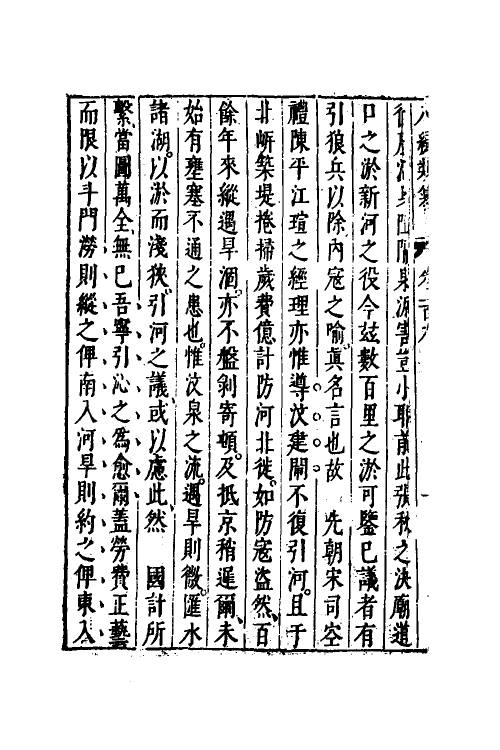 八編類纂 卷一百九
害豈小耶前此張秋之決廟道
口之淤新河之役今玆數百里之淤可鑒已議者有
引狼兵以除內寇之喻真名言也故　先朝宋司空
禮陳平江瑄之經理亦惟導汶建閘不復引河且于
北岍築堤捲掃歲費億計防河北徙如防寇盜然百
餘年來縱遇旱涸亦不盤剝寄頓及抵京稍遲爾未
始有壅塞不通之患也惟汶泉之流遇旱則微匯水
諸湖以淤而淺狹引河之議或以慮此然　國計所
繫當圖萬全無已吾寧引沁之爲愈爾蓋勞費正藝
而限以斗門澇則縱之俾南入河旱則約之俾東入